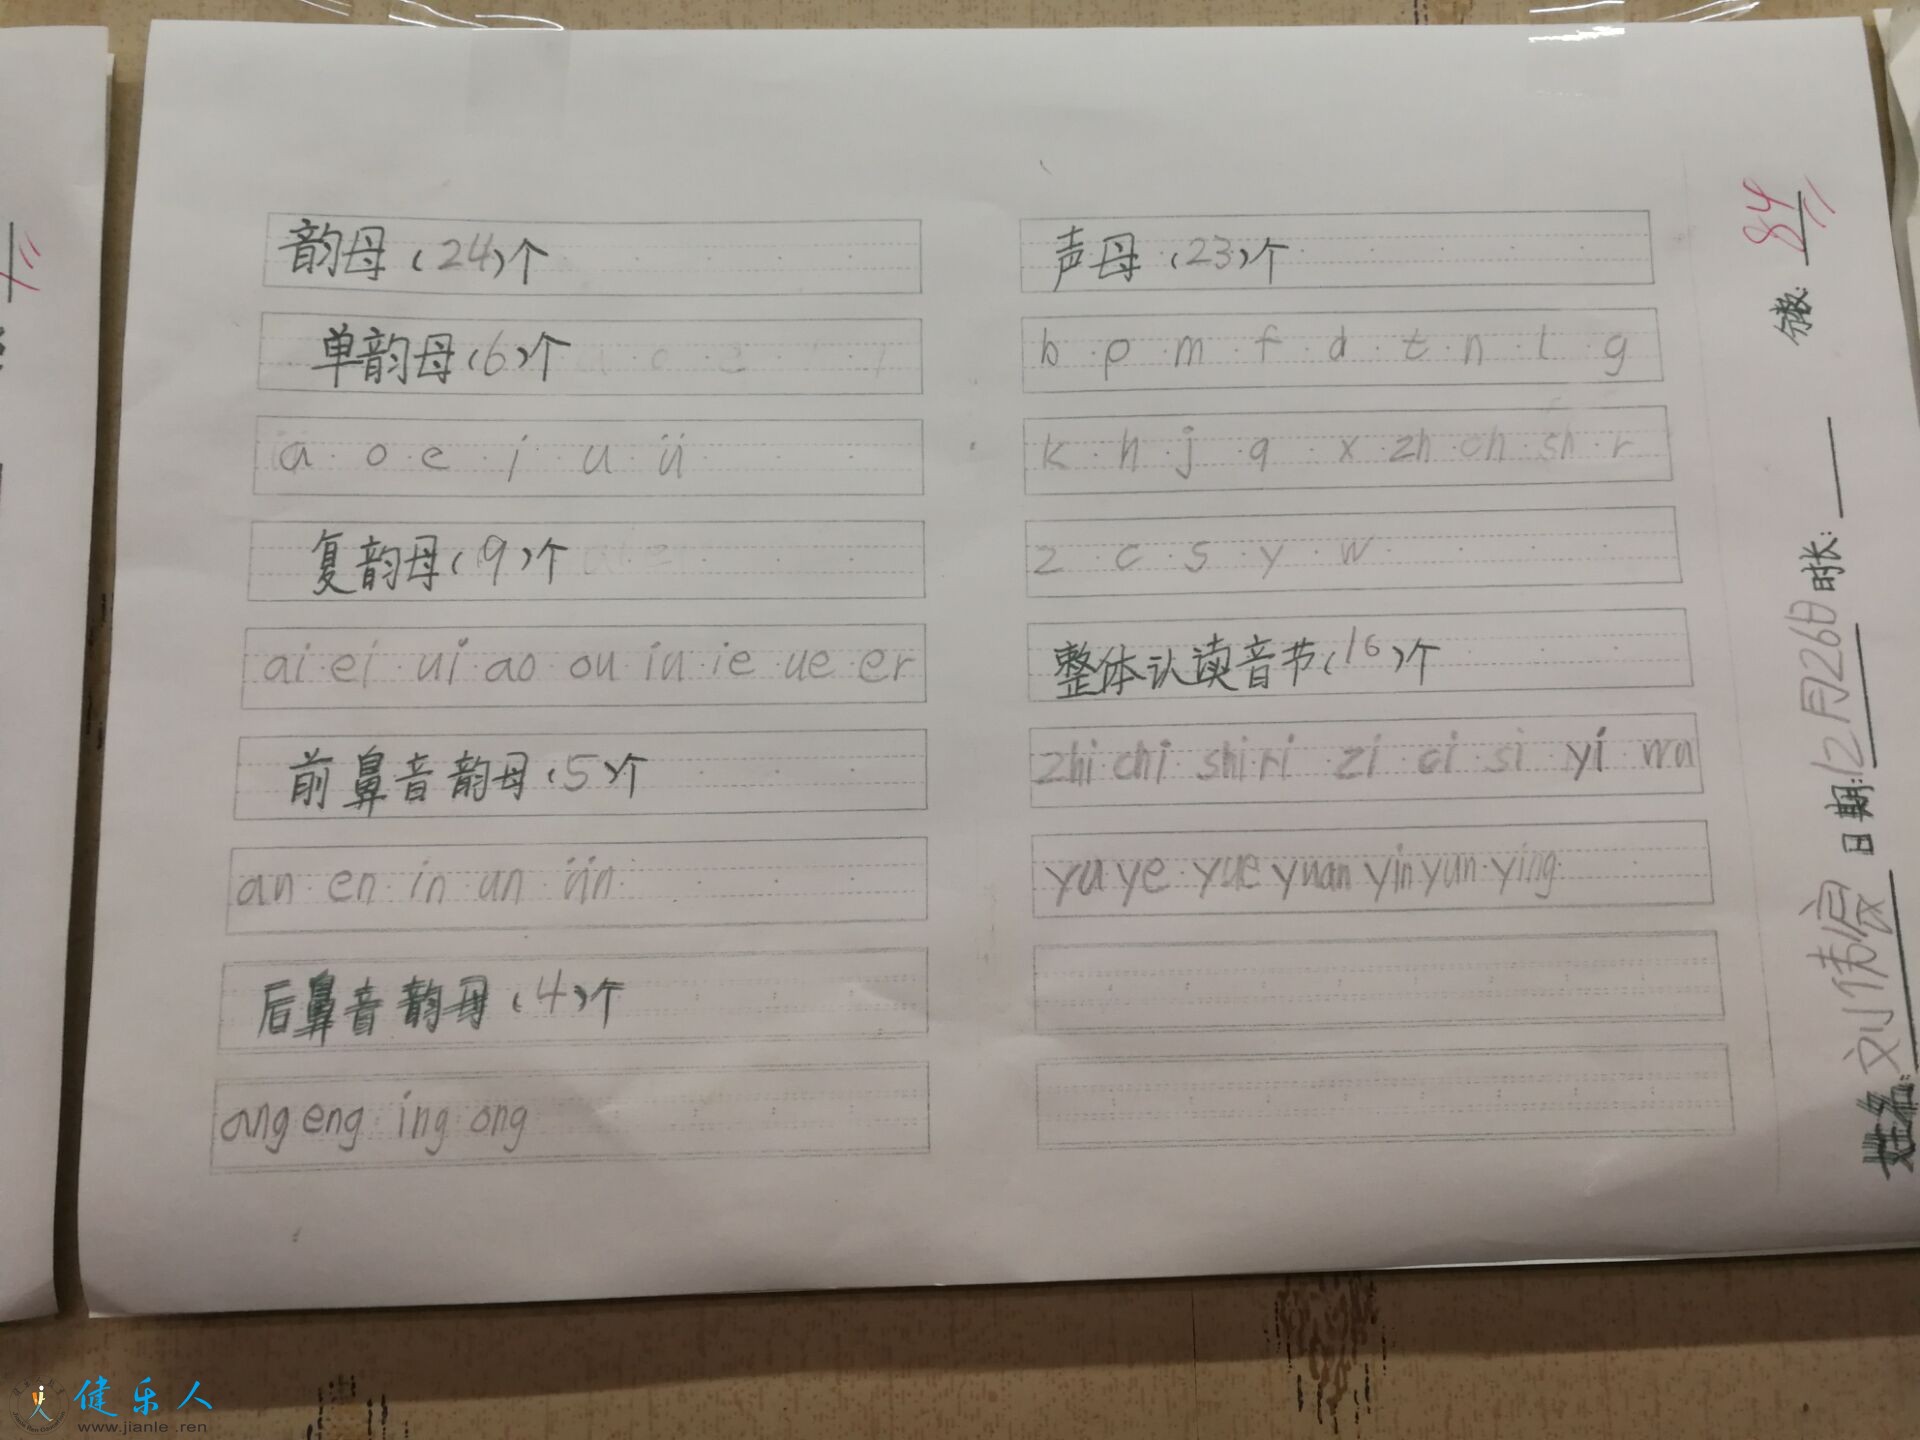 韵母（24）个
单韵母（6）个
a o e i u ü
复韵母（9）个
ai ei ui ao ou iu ie ue er
前鼻音韵母（5）个
an en in un ün
后鼻音韵母（4）个
ang eng ing ong
声母（23）个
b p m f d t n l g
k h j q x zh ch sh r
z c s y w
整体认读音节（16）个
zhi chi shi ri zi ci si yi wu
yu ye yue yuan yin yun ying
姓名：刘 日期：12月26日 时长： 分数：84
健乐人
www.jianle.ren